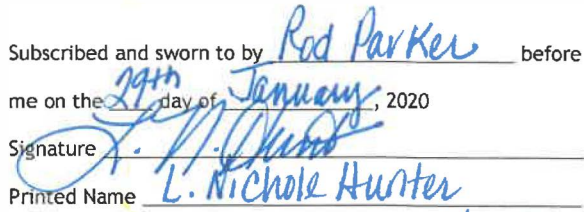 Subscribed and sworn to by Rod Parker before
me on the 29th day of January, 2020
Signature L. N. Hunter
Printed Name L. Nichole Hunter